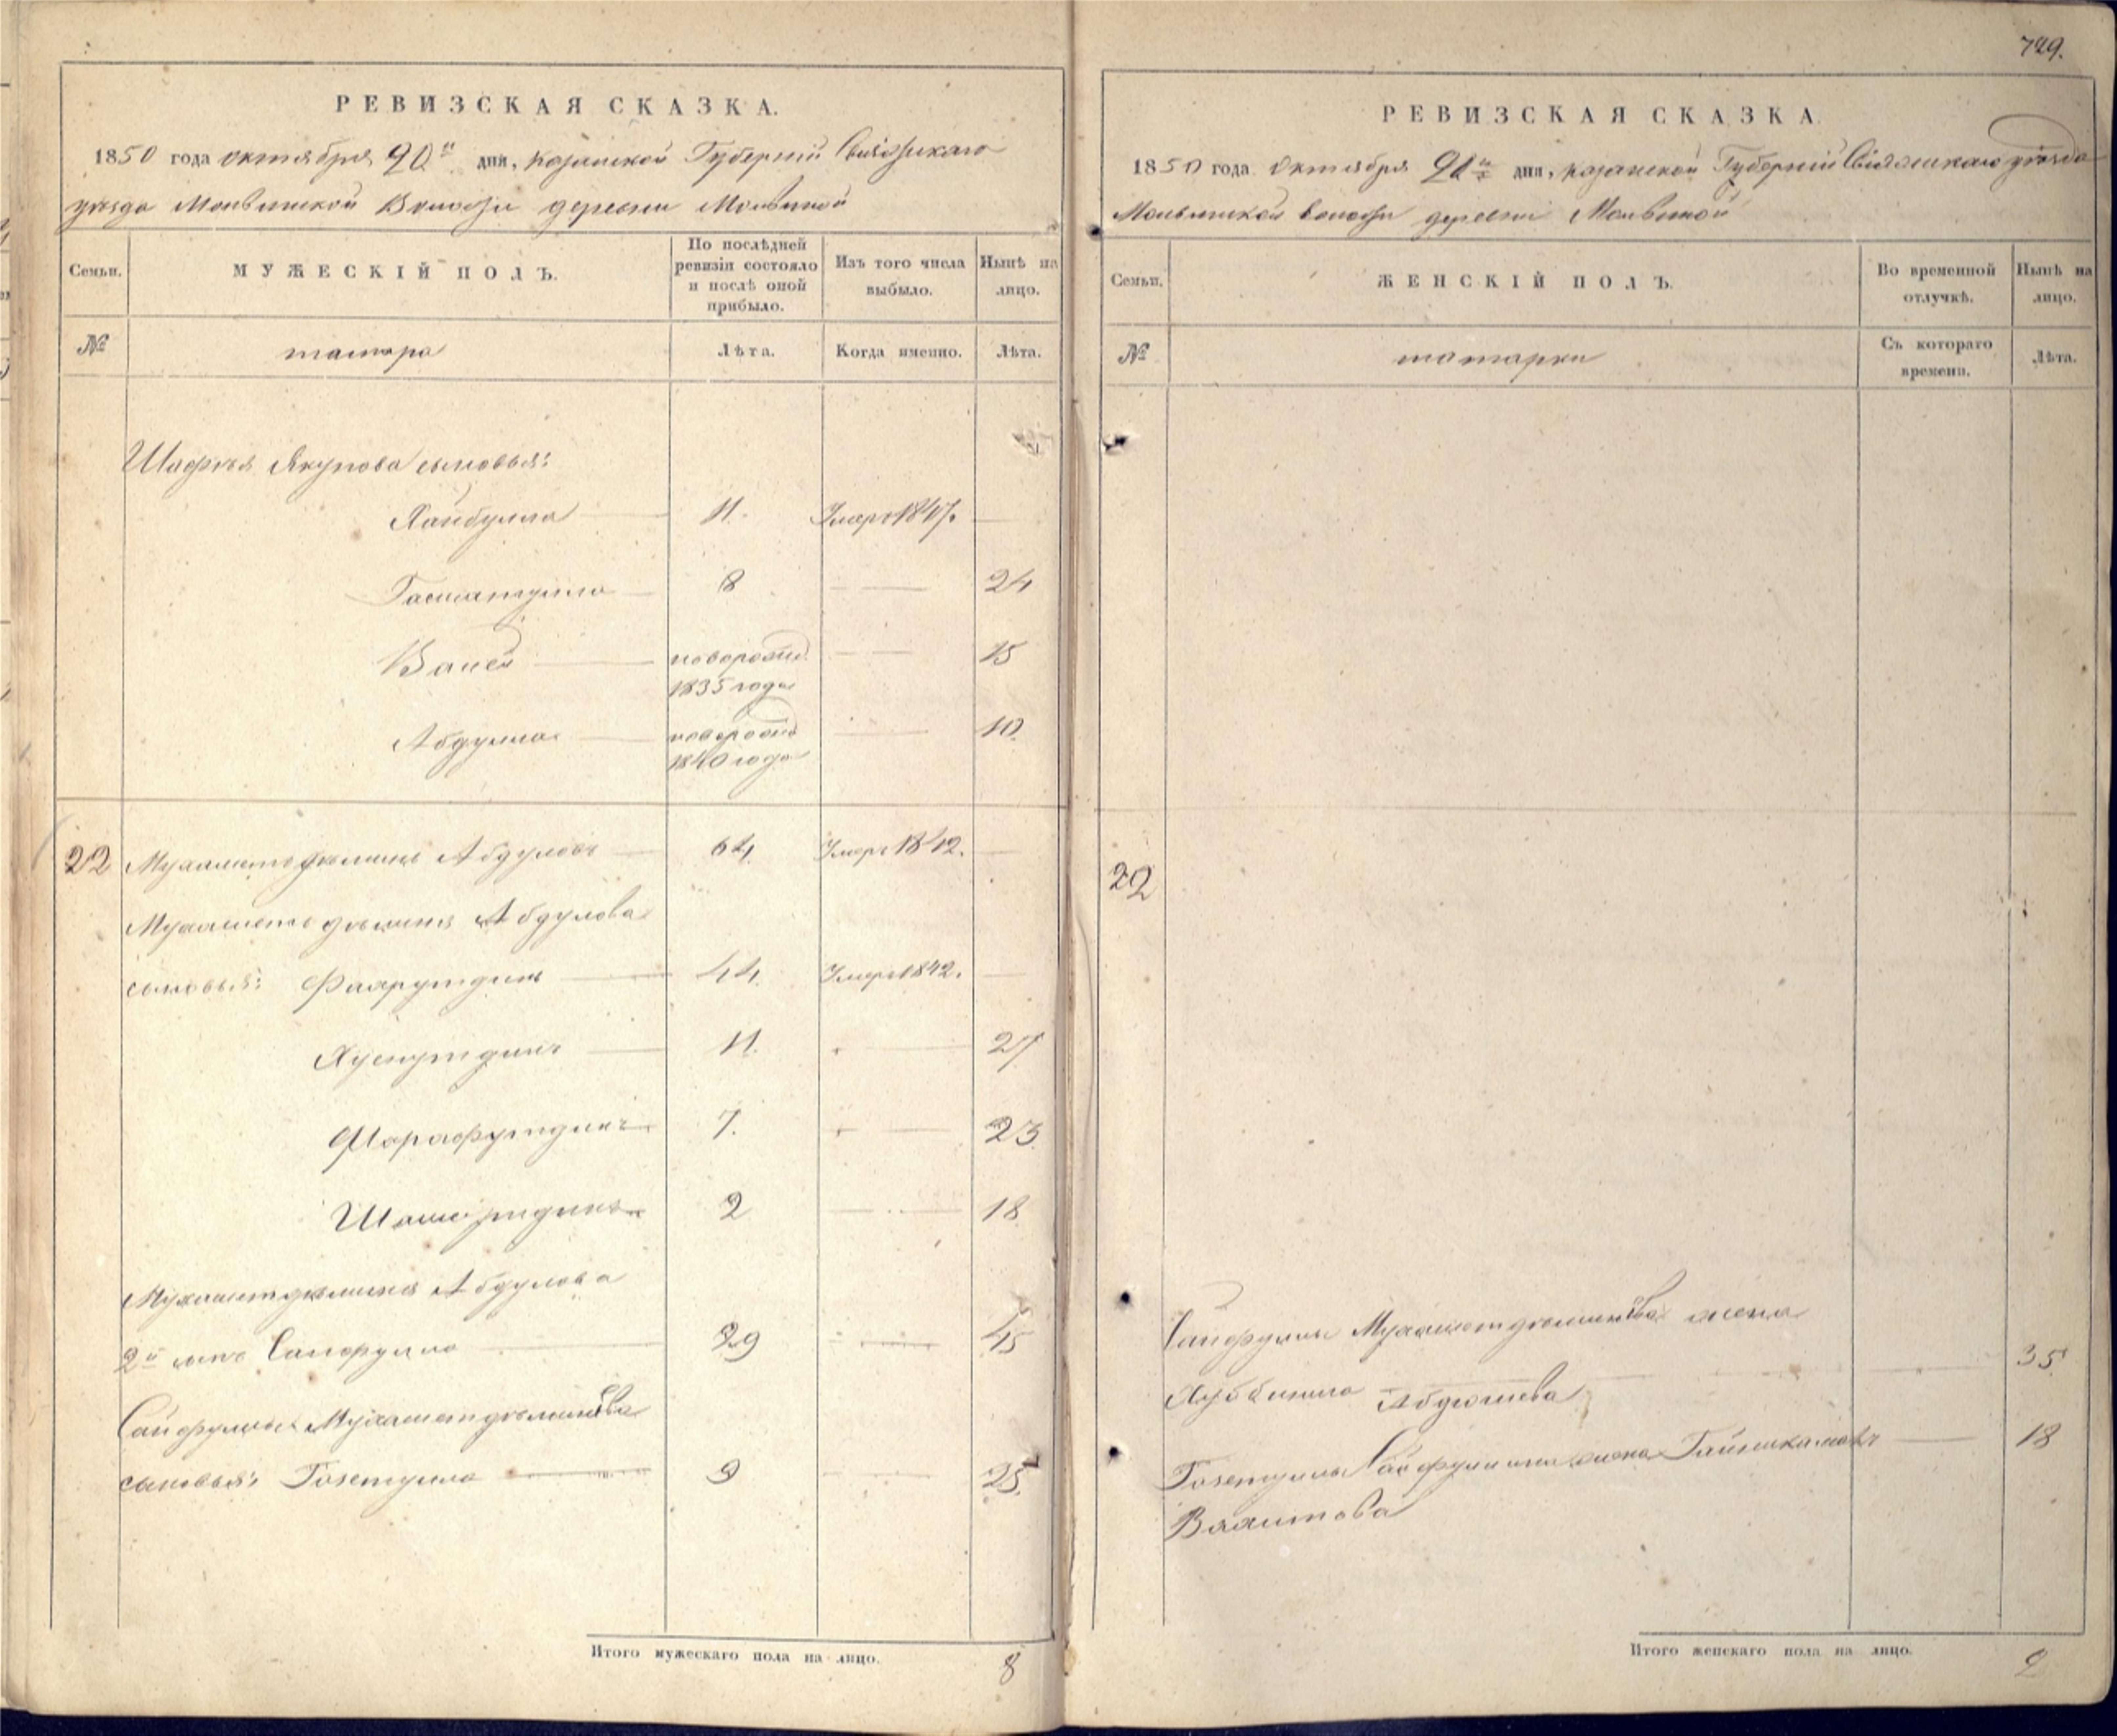 729.
РЕВИЗСКАЯ СКАЗКА.
1850 года октября 20го дня, Казанской Губерніи Свіяжскаго
уѣзда Мольвинской Волости деревни Мольвиной
Семьи. МУЖЕСКІЙ ПОЛЪ. По послѣдней ревизіи состояло и послѣ оной прибыло. Изъ того числа выбыло. Нынѣ на лицо.
№ татара Лѣта. Когда именно. Лѣта.
Шафѣя Якупова сыновья:
Хайбулла 11. Умеръ 1847.
8 24
Валей новорожд. 1835 года 15
Абдулла новорожд. 1840 года 10.
22 Мухаметдѣминъ Абдуловъ 64. Умеръ 1842.
Мухаметдѣмина Абдулова
сыновья: Фахрутдинъ 44. Умеръ 1842.
Хуснутдинъ 11. 27
Шарафутдинъ 7. 23.
Шамсутдинъ 2 18
Мухаметдѣмина Абдулова
2й сынъ Сайфулла 29 45
Сайфуллы Мухаметдѣминова
сыновья: Гозетулла 9 25.
Итого мужескаго пола на лицо. 8
РЕВИЗСКАЯ СКАЗКА
1850 года Октября 20го дня, Казанской Губерніи Свіяжскаго уѣзда
Мольвинской волости деревни Мольвиной
Семьи. ЖЕНСКІЙ ПОЛЪ. Во временной отлучкѣ. Нынѣ на лицо.
№ татарки Съ котораго времени. Лѣта.
22
Сайфуллы Мухаметдѣминова жена
Абдюшева 35.
Гозетуллы Сайфуллина жена 18
Вахитова
Итого женскаго пола на лицо. 2